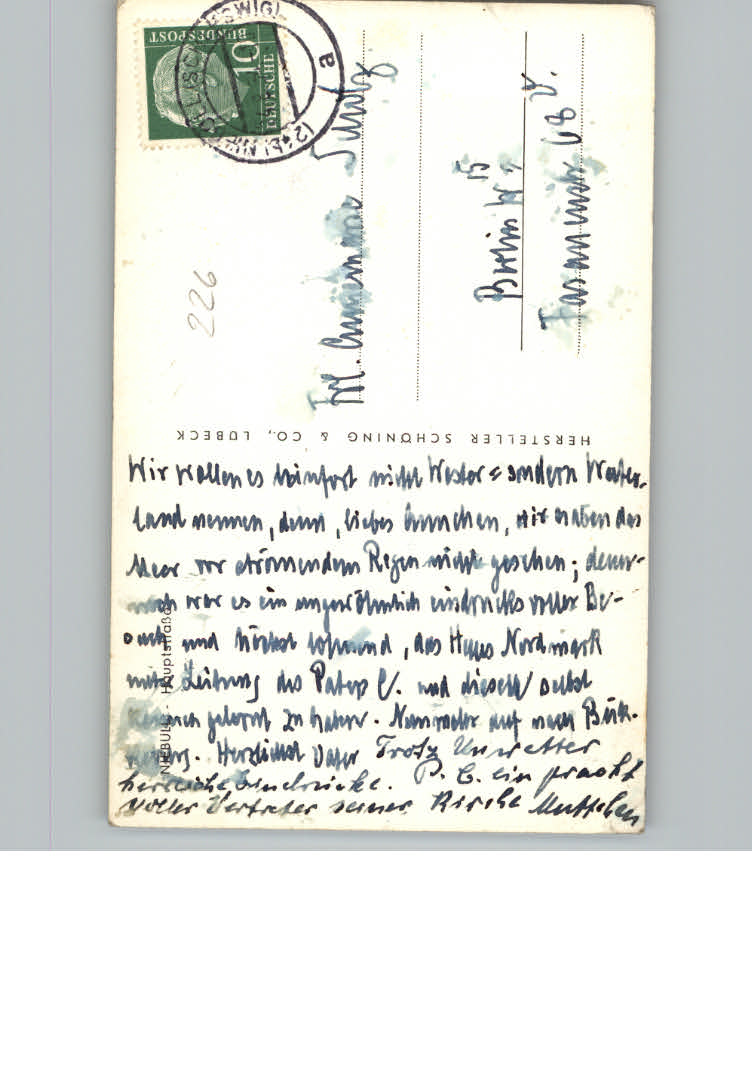 DEUTSCHE
BUNDESPOST
10
a
226
Frl. Annemarie
Berlin W
15
Fasanenstr. 68 v.
HERSTELLER SCHÖNING & CO., LÜBECK
NIEBÜLL - Hauptstraße
Wir wollen es hinfort nicht Wester = sondern Wester-
land nennen, denn, liebes Annchen, wir haben das
Meer vor strömendem Regen nicht gesehen; dem-
nach war es ein ungewöhnlich eindrucksvoller Be-
such und höchst lohnend, das Haus Nordmark
unter Leitung des Paters C. und diesen selbst
kennen gelernt zu haben. Nunmehr auf nach
Herzlichst Vater Trotz Unwetter
herrliche Eindrücke. P. C. ein pracht
voller Vertreter seiner Kirche Muttchen